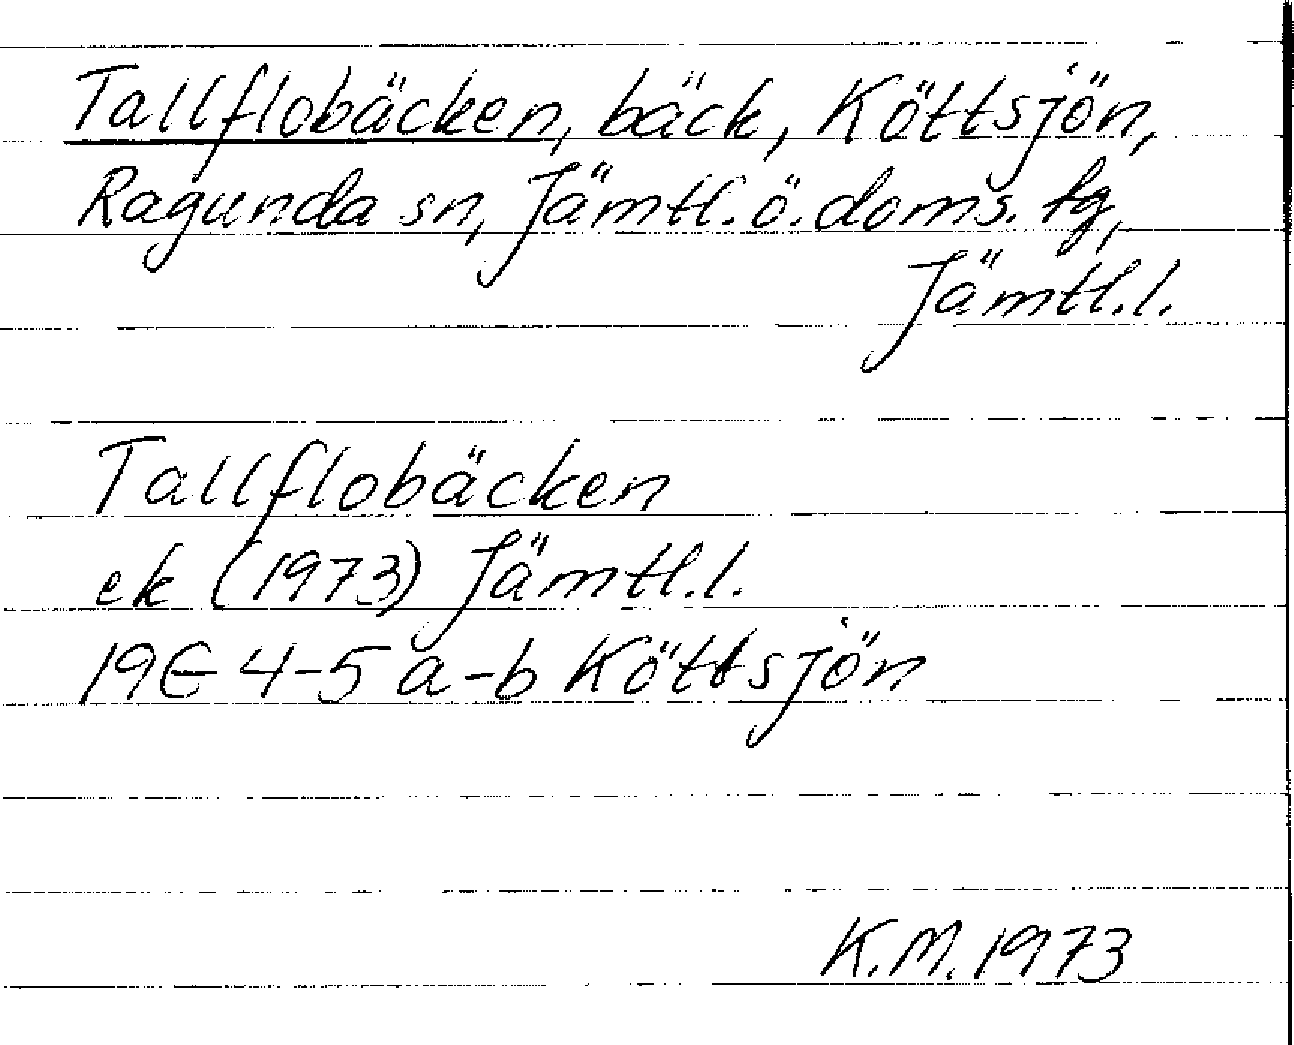 Tallflobäcken, bäck, Köttsjön,
Ragunda sn, Jämtl. ö. doms. tg,
Jämtl. l.
Tallflobäcken
ek (1973) Jämtl. l.
19E 4-5 a-b Köttsjön
K.M. 1973